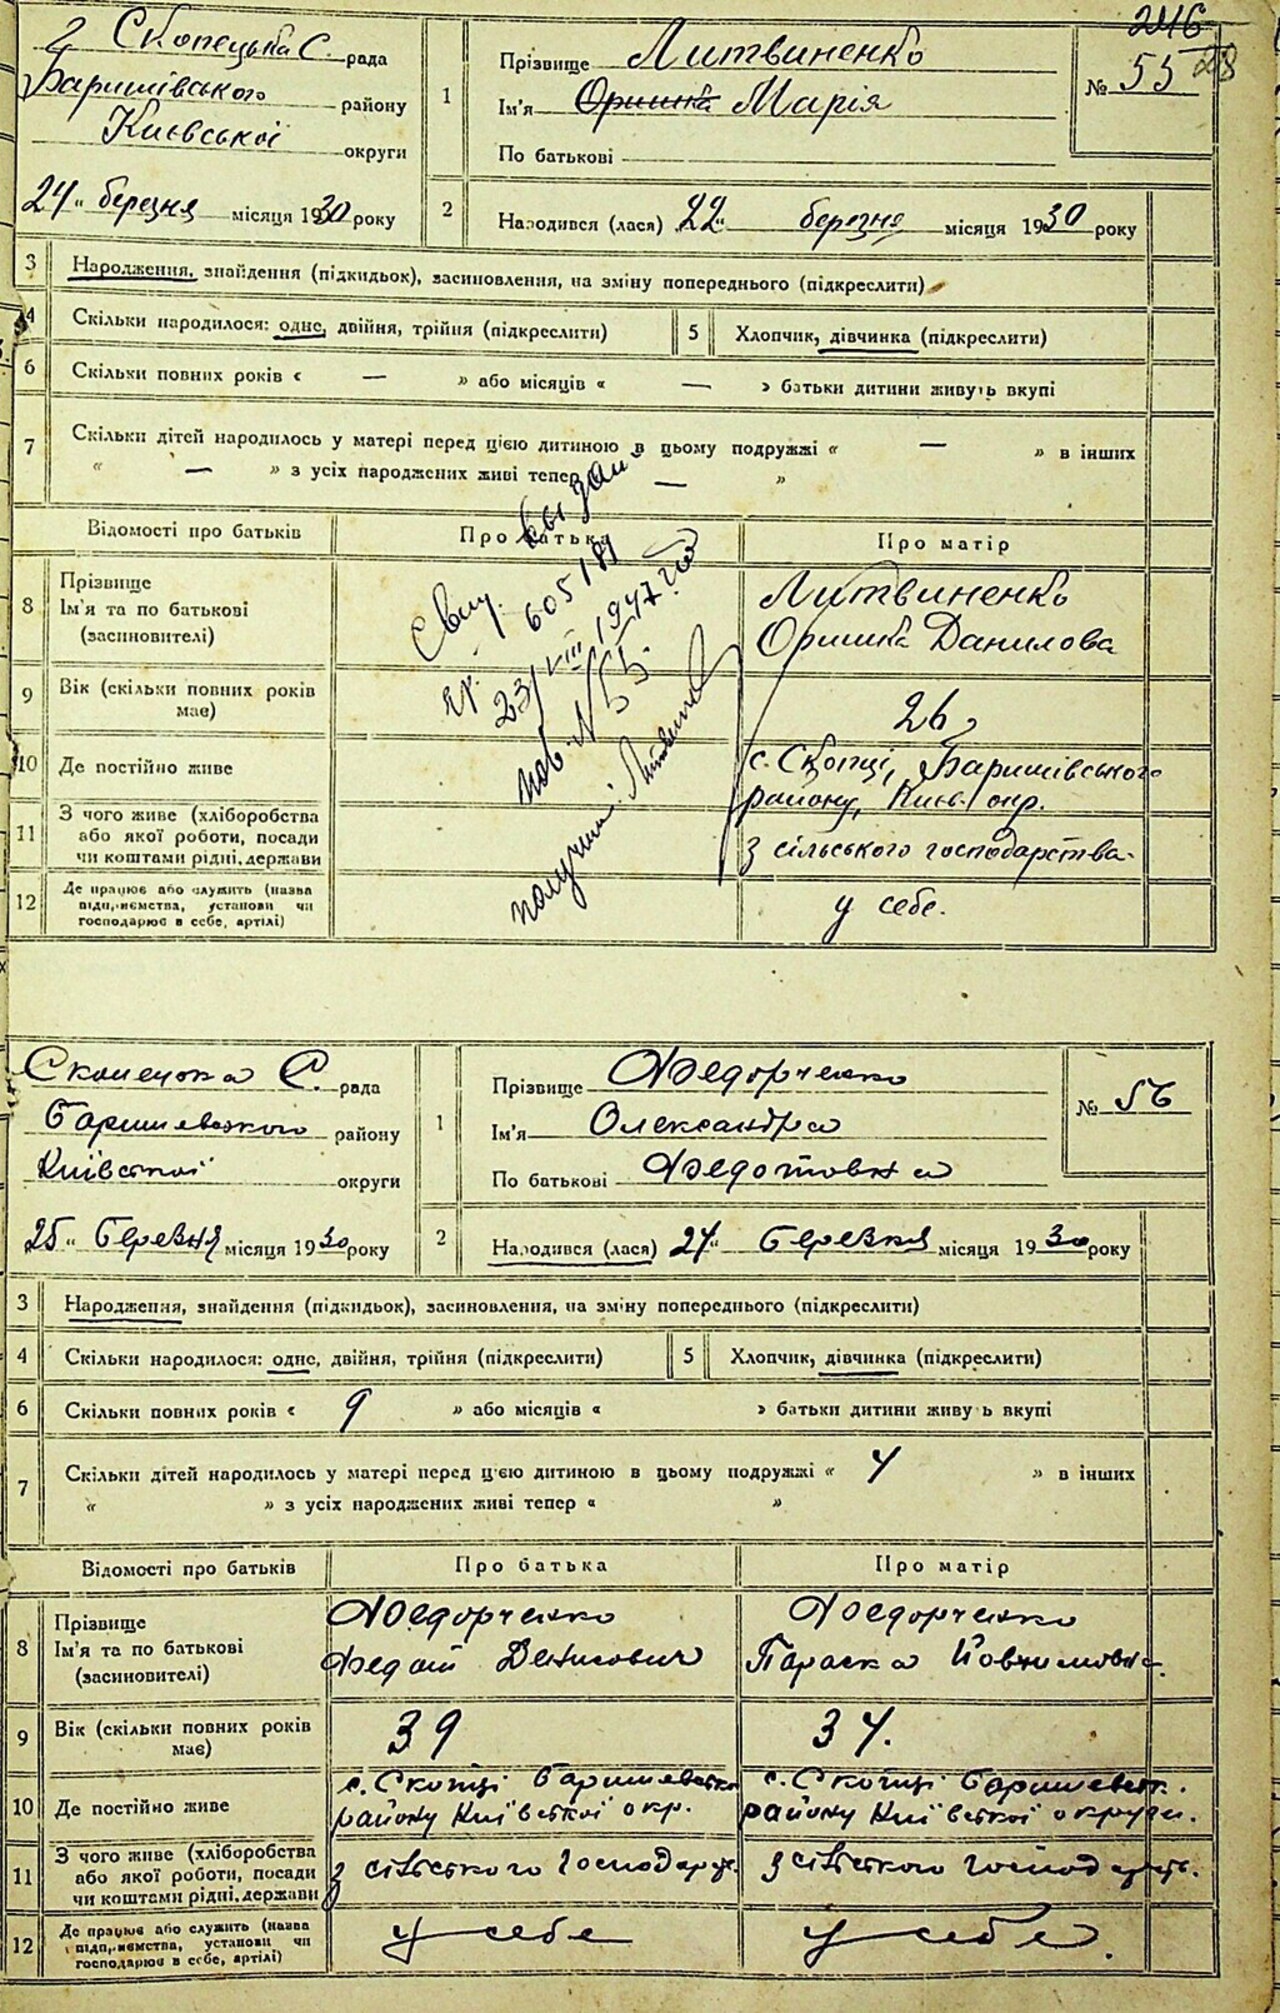 246
28
Скопецька С. рада
Баришівського району
Київської округи
24 " березня місяця 1930 року
1
Прізвище Литвиненко
Ім'я Оришка Марія
По батькові
№ 55
2
Народився (лася) 22 " березня місяця 1930 року
3 Народження, знайдення (підкидьок), засиновлення, на зміну попереднього (підкреслити)
4 Скільки народилося: одне, двійня, трійня (підкреслити) 5 Хлопчик, дівчинка (підкреслити)
6 Скільки повних років « — » або місяців « — » батьки дитини живуть вкупі
7 Скільки дітей народилось у матері перед цією дитиною в цьому подружжі « — » в інших
« — » з усіх народжених живі тепер — »
Відомості про батьків Про батька Про матір
8 Прізвище
Ім'я та по батькові
(засиновителі)
Литвиненко
Оришка Данилова
9 Вік (скільки повних років
має)
26
10 Де постійно живе
с. Скопці, Баришівського
району, Київ. окр.
11 З чого живе (хліборобства
або якої роботи, посади
чи коштами рідні, держави
з сільського господарства.
12 Де працює або служить (назва
підприємства, установи чи
господарює в себе, артілі)
у себе.
605181
23/VIII 1947
Скопецька С. рада
Баришевського району
Київської округи
25 " Березня місяця 1930 року
1
Прізвище Федорченко
Ім'я Олександра
По батькові Федотовна
№ 56
2
Народився (лася) 24 " Березня місяця 1930 року
3 Народження, знайдення (підкидьок), засиновлення, на зміну попереднього (підкреслити)
4 Скільки народилося: одне, двійня, трійня (підкреслити) 5 Хлопчик, дівчинка (підкреслити)
6 Скільки повних років « 9 » або місяців « » батьки дитини живуть вкупі
7 Скільки дітей народилось у матері перед цією дитиною в цьому подружжі « 4 » в інших
« » з усіх народжених живі тепер « »
Відомості про батьків Про батька Про матір
8 Прізвище
Ім'я та по батькові
(засиновителі)
Федорченко
Федот Денисович
Федорченко
Параска
9 Вік (скільки повних років
має)
39
34.
10 Де постійно живе
с. Скопці Баришевськ
району Київської окр.
с. Скопці Баришевськ.
району Київської округи.
11 З чого живе (хліборобства
або якої роботи, посади
чи коштами рідні, держави
з сільського господарс.
з сільського господарсь.
12 Де працює або служить (назва
підприємства, установи чи
господарює в себе, артілі)
у себе
у себе.